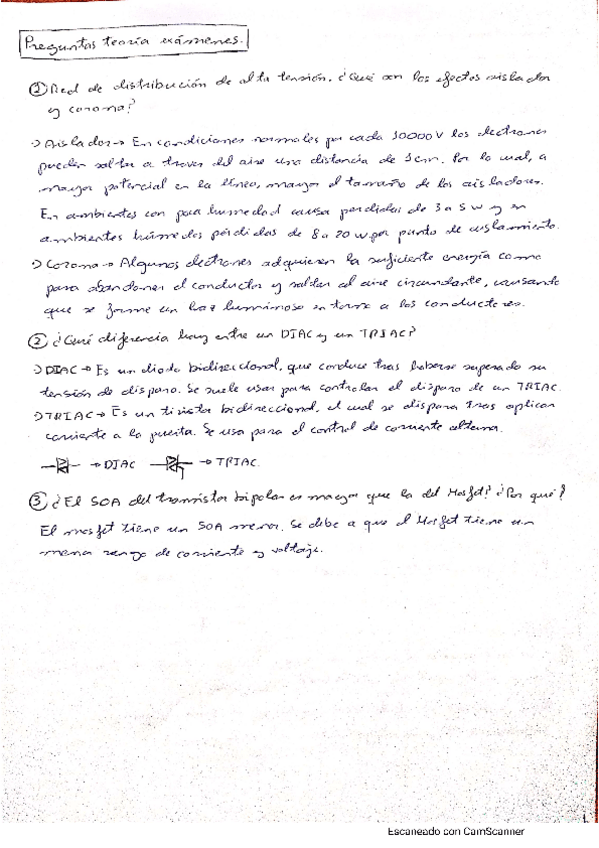 Preguntas teoría exámenes.
① Red de distribución de alta tensión. ¿Qué son los efectos aislador
y corona?
→ Aislador → En condiciones normales por cada 10000V los electrones
pueden saltar a traves del aire una distancia de 1cm. Por lo cual, a
mayor potencial en la línea, mayor el tamaño de los aisladores.
En ambientes con poca humedad causa perdidas de 3 a 5 w y en
ambientes húmedos pérdidas de 8 a 20 w por punto de aislamiento.
→ Corona → Algunos electrones adquieren la suficiente energía como
para abandonar el conductor y saltar al aire circundante, causando
que se forme un haz luminoso en torno a los conductores.
② ¿Qué diferencia hay entre un DIAC y un TRIAC?
→ DIAC → Es un diodo bidireccional, que conduce tras haberse superado su
tensión de disparo. Se suele usar para controlar el disparo de un TRIAC.
→ TRIAC → Es un tiristor bidireccional, el cual se dispara tras aplicar
corriente a la puerta. Se usa para el control de corriente alterna.
→ DIAC → TRIAC.
③ ¿El SOA del transistor bipolar es mayor que la del Mosfet? ¿Por qué?
El mosfet tiene un SOA menor. Se debe a que el Mosfet tiene un
menor rango de corriente y voltaje.
Escaneado con CamScanner